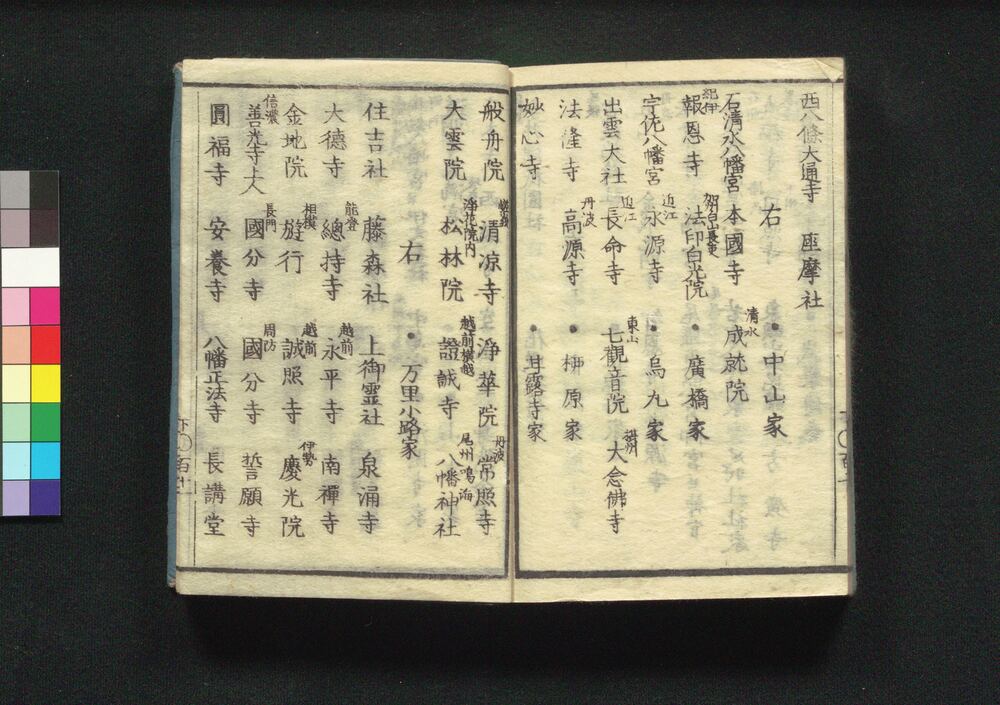 西八條大通寺　座摩社
右　●中山家
石清水八幡宮　本國寺　清水成就院
紀伊報恩寺　加州白山長吏法印白光院　●廣橋家
宇佐八幡宮　近江永源寺　●烏丸家
出雲大社　近江長命寺　東山七觀音院　攝州大念佛寺
法隆寺　丹波高源寺　●栁原家
妙心寺　●甘露寺家
般舟院　嵯峨清凉寺　淨華院　丹波常照寺
大雲院　淨花院内松林院　越前横越證誠寺　尾州鳴海八幡神社
右　●万里小路家
住吉社　藤森社　上御霊社　泉涌寺
大德寺　能登總持寺　越前永平寺　南禪寺
金地院　相模遊行　越前誠照寺　伊勢慶光院
信濃善光寺上人　長門國分寺　周防國分寺　誓願寺
圓福寺　安養寺　八幡正法寺　長講堂